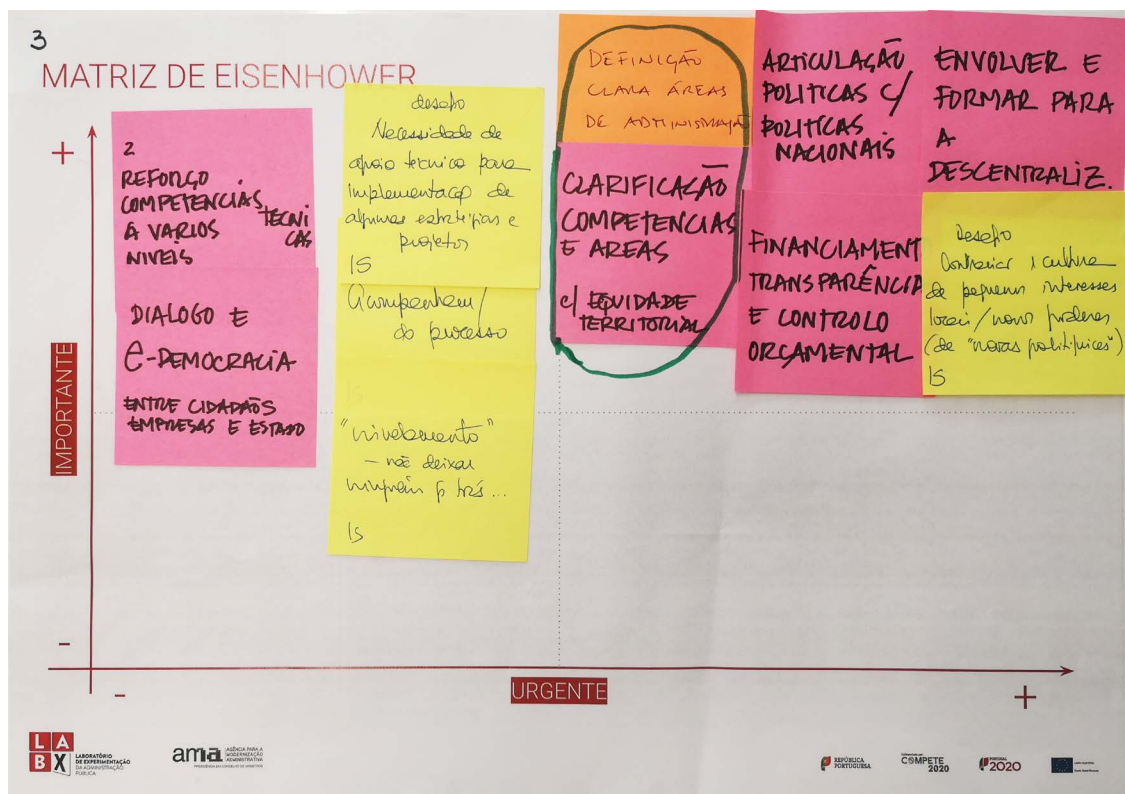 3
MATRIZ DE EISENHOWER
+
IMPORTANTE
-
-
URGENTE
+
2
REFORÇO
COMPETENCIAS
TÉCNI
CAS
A VARIOS
NIVEIS
DIALOGO E
e-DEMOCRACIA
ENTRE CIDADAÕS
EMPRESAS E ESTADO
desafio
Necessidade de
apoio técnico para
implementação de
algumas estratégias e
projetos
IS
Acompanham/
do processo
IS
"nivelamento"
- não deixar
ninguém p trás...
IS
DEFINIÇÃO
CLARA ÁREAS
DE ADMINISTRAÇÃO
CLARIFICAÇÃO
COMPETENCIAS
E AREAS
c/ EQUIDADE
TERRITORIAL
ARTICULAÇÃO
POLITICAS C/
POLITICAS
NACIONAIS
FINANCIAMENT
TRANSPARÊNCIA
E CONTROLO
ORÇAMENTAL
ENVOLVER E
FORMAR PARA
A
DESCENTRALIZ.
Desafio
Contrariar a cultura
de pequenos interesses
locais/novos poderes
(de "novas politiquices")
IS
LABX
LABORATÓRIO
DE EXPERIMENTAÇÃO
DA ADMINISTRAÇÃO
PÚBLICA
ama
AGÊNCIA PARA A
MODERNIZAÇÃO
ADMINISTRATIVA
REPÚBLICA
PORTUGUESA
COMPETE
2020
PORTUGAL
2020